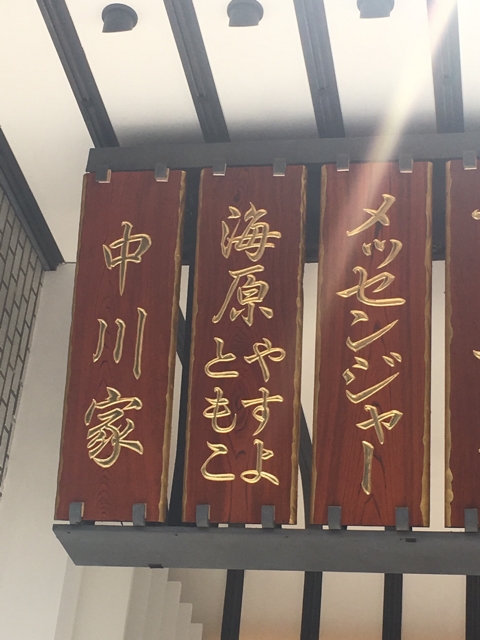 メッセンジャー
海原
やすよ
ともこ
中川家